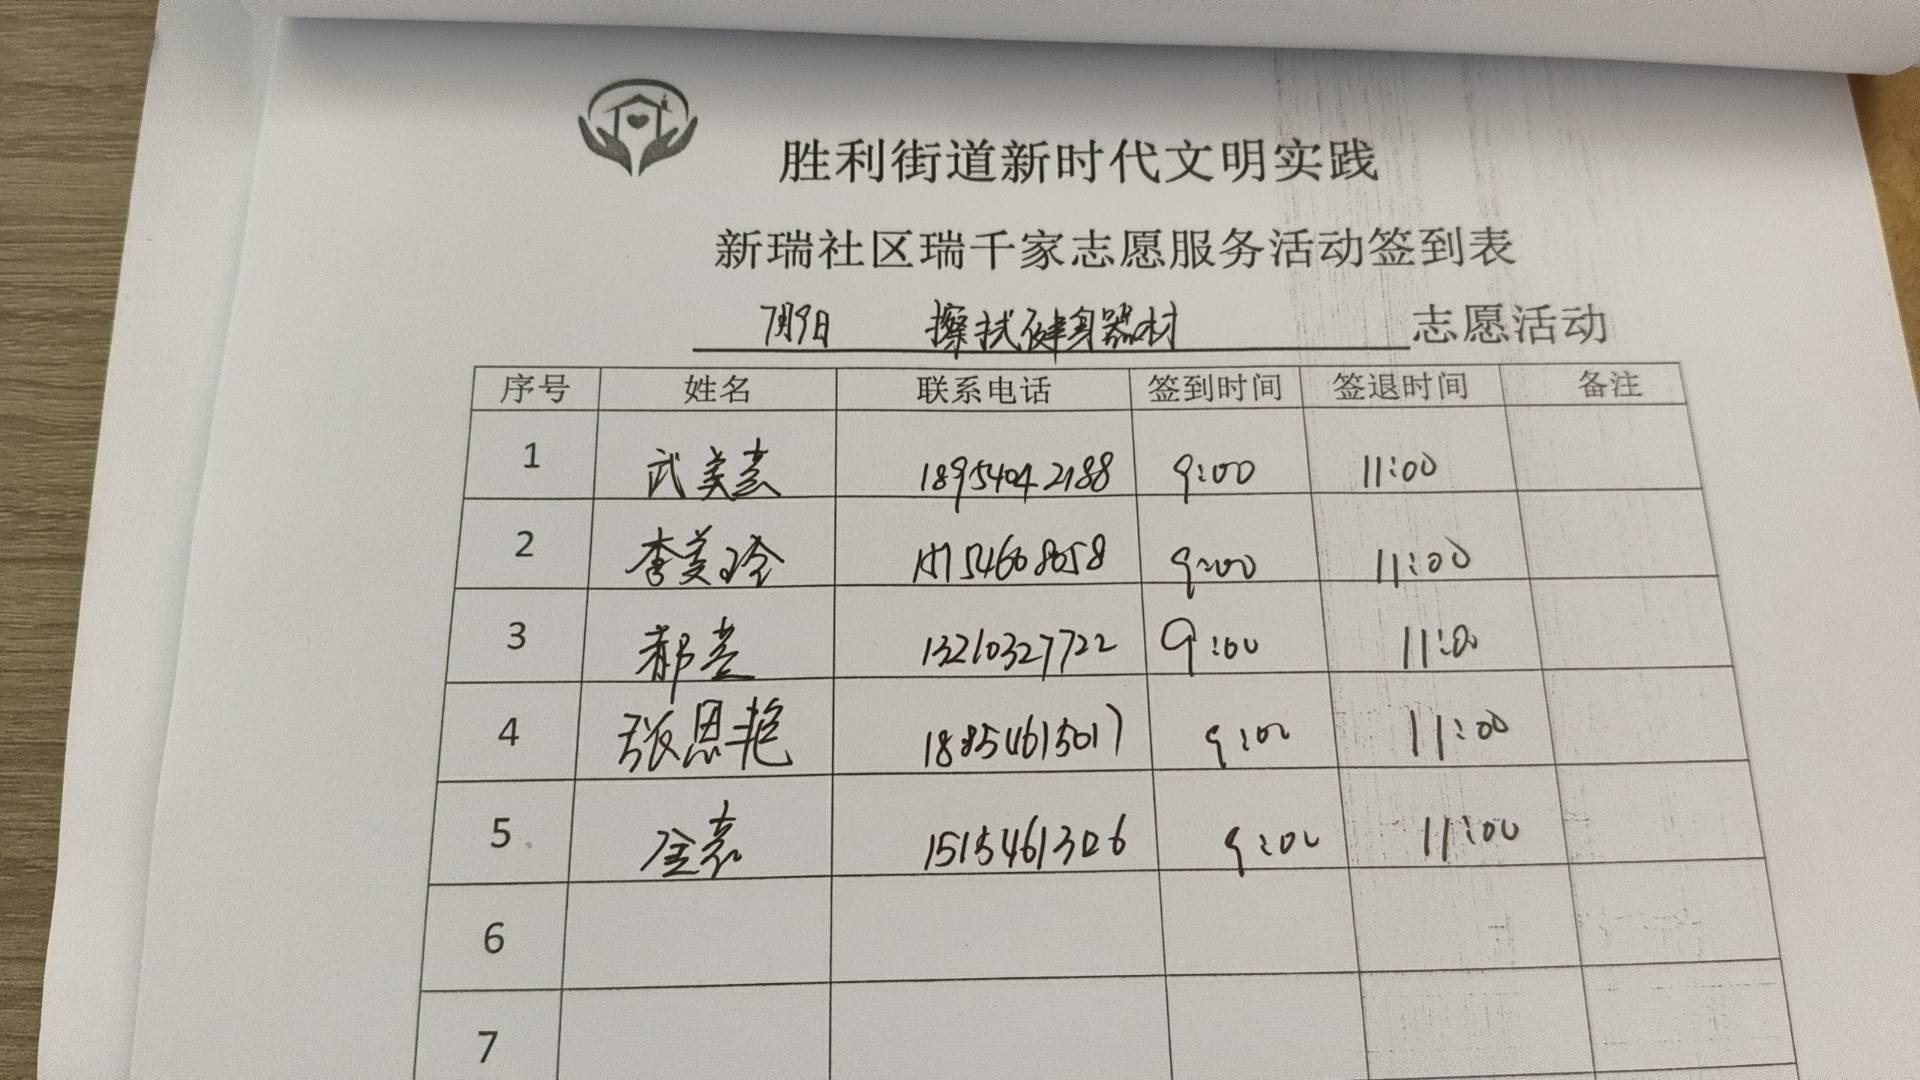 胜利街道新时代文明实践
新瑞社区瑞千家志愿服务活动签到表
7月9日 擦拭健身器材 志愿活动
序号 姓名 联系电话 签到时间 签退时间 备注
1 武美 18954042188 9:00 11:00
2 李美玲 9:00 11:00
3 郝 13210327722 9:00 11:00
4 张恩艳 18854615017 9:00 11:00
5 9:00 11:00
6
7